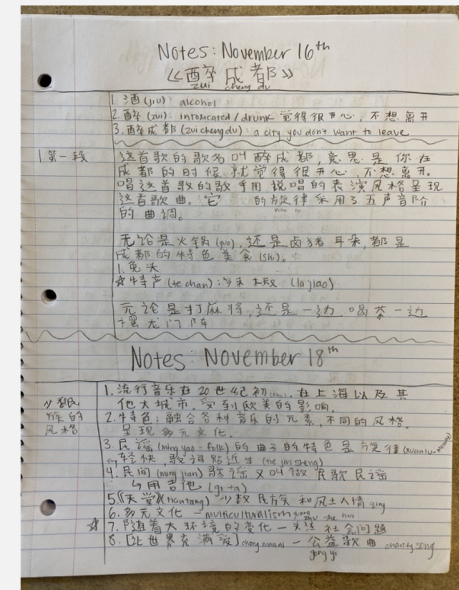 Notes: November 16th
《醉成都》
zui cheng du
1. 酒 (jiu) alcohol
2. 醉 (zui) intoxicated / drunk 觉得很开心, 不想离开
3. 醉成都 (zui cheng du) a city you don't want to leave
1. 第一段
这首歌的歌名叫醉成都, 意思是你在
成都的时候, 就觉得很开心, 不想离开.
唱这首歌的歌手用说唱的表演风格呈现
这首歌曲. 它 的旋律采用了五声音阶
的曲调.
无论是火锅 (guo), 还是卤猪耳朵, 都是
成都的特色美食 (shi).
1. 兔头
☆ 特产 (te chan): (la jiao)
无论是打麻将, 还是一边喝茶一边
摆龙门阵
Notes: November 18th
1. 流行音乐在20世纪初, 在上海以及其
他大城市, 受到欧美的影响.
2. 特色: 融合各种音乐的元素, 不同的风格,
呈现多元文化.
风格
3. 民谣 (min yao - folk) 的曲子的特色是旋律
轻快, 歌词贴近生
4. 民间 (min jian) 歌谣又叫做民歌民谣
用吉他 (ji ta)
5. 《天堂》 (tian tang) 少数民族和风土人情 qing
6. 多元文化 - multiculturalism
☆ 7. 随着大环境的变化 - 关注社会问题
8. [让世界充满爱] chong man ai - 公益歌曲 charity song
gong yi